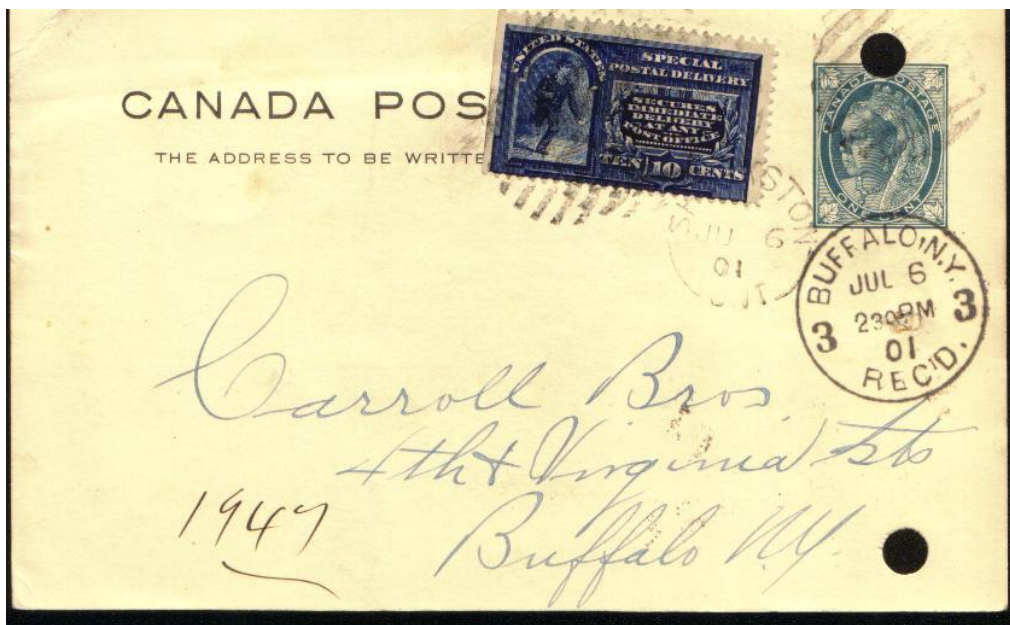 CANADA POS
THE ADDRESS TO BE WRITTE
UNITED STATES
SPECIAL
POSTAL DELIVERY
SECURES
IMMEDIATE
DELIVERY
AT ANY
POST OFFICE
TEN 10 CENTS
CANADA POSTAGE
ONE CENT
STON
JU 6
01
ONT
BUFFALO, N.Y.
JUL 6
230PM
3 3
01
REC'D.
Carroll Bros.
4th & Virginia Sts
Buffalo N.Y.
1947